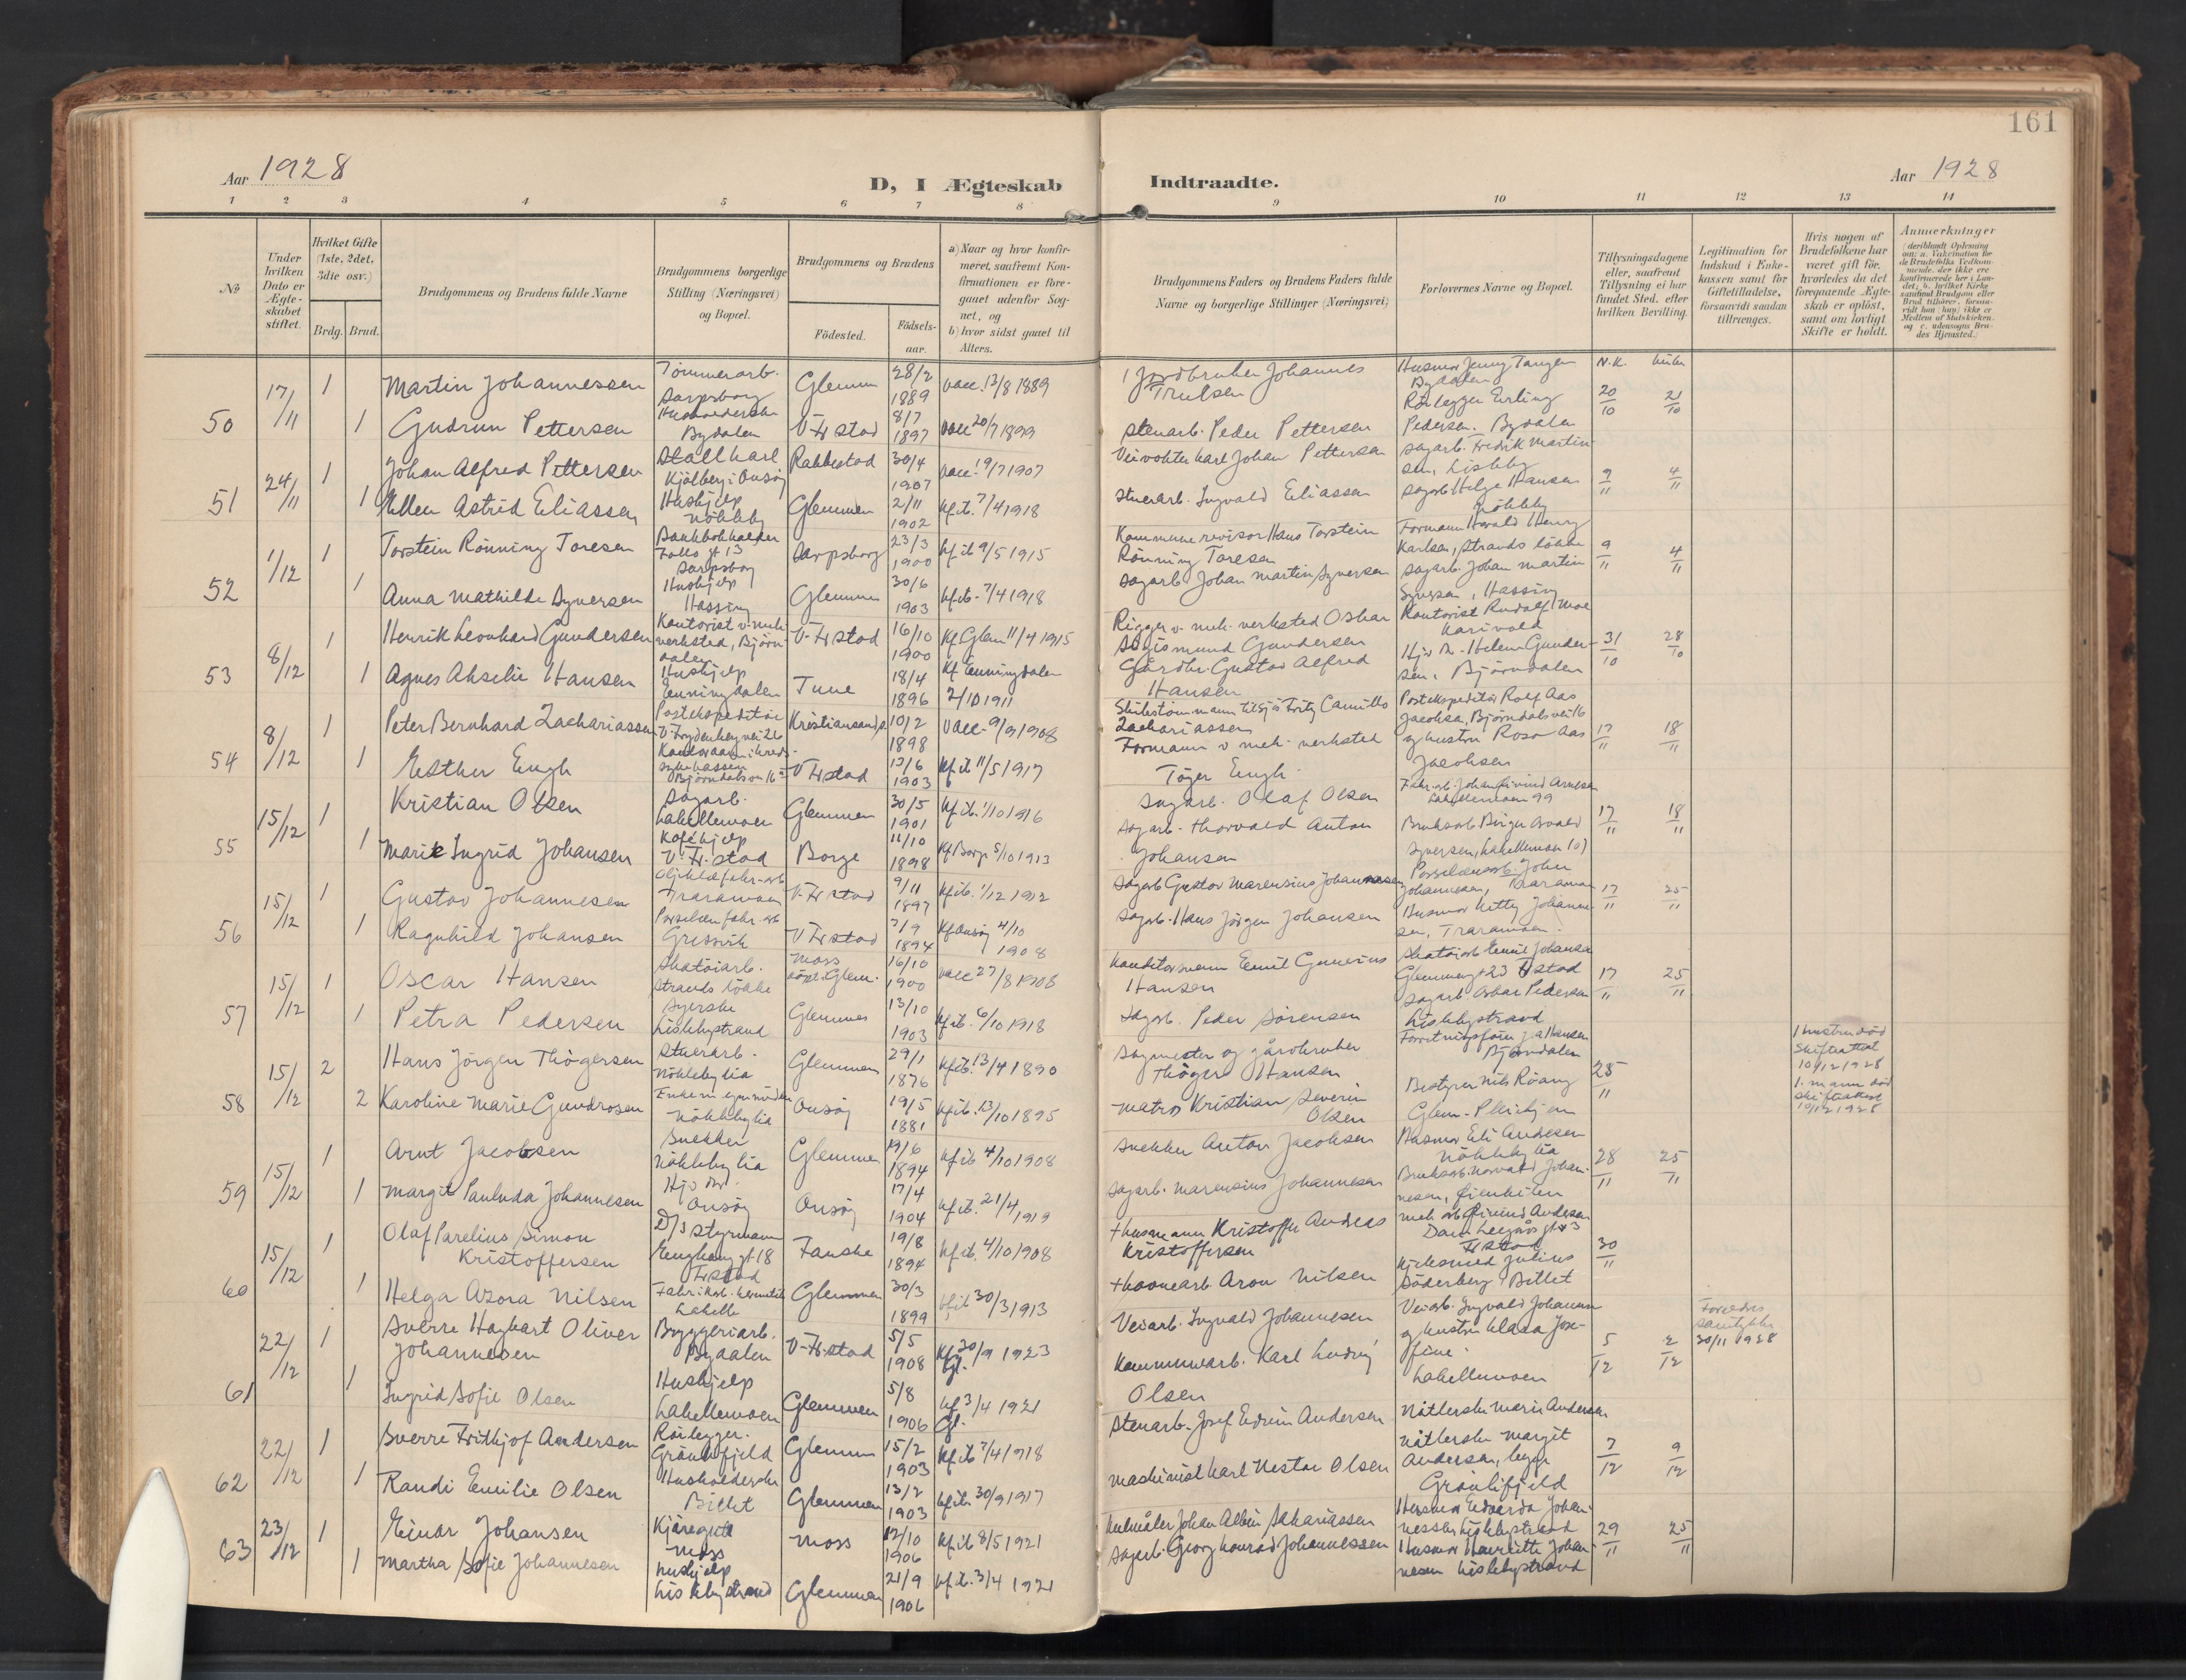 161
Aar 1928
D, I Ægteskab Indtraadte.
Aar 1928
1 2 3 4 5 6 7 8 9 10 11 12 13 14
№
Under hvilken Dato er Ægteskabet stiftet.
Hvilket Gifte (1ste, 2det, 3die osv.)
Brdg. Brud.
Brudgommens og Brudens fulde Navne
Brudgommens borgerlige Stilling (Næringsvei) og Bopæl.
Brudgommens og Brudens
Födested.
Födsels-aar.
a) Naar og hvor konfirmeret, saafremt Konfirmationen er foregaaet udenfor Sognet, og
b) hvor sidst gaaet til Alters.
Brudgommens Faders og Brudens Faders fulde Navne og borgerlige Stillinger (Næringsvei)
Forlovernes Navne og Bopæl.
Tillysningsdagene eller, saafremt Tillysning ei har fundet Sted, efter hvilken Bevilling.
Legitimation for Indskud i Enkekassen samt for Giftetilladelse, forsaavidt saadan tiltrænges.
Hvis nogen af Brudefolkene har været gift før, hvorledes da det foregaaende Ægteskab er oplöst, samt om lovligt Skifte er holdt.
Anmærkninger
50 17/11 1 Martin Johannessen Tömmerarb. Sarpsborg Glemmen 28/2 1889 vacc. 12/8 1889 Jordbruker Johannes Truelsen Husmor Jenny Tangen Bydalen N.K. 20/10 21/10
1 Gudrun Pettersen Bydalen V. Fr stad 8/7 1897 vacc 20/7 1899 Stenarb. Peder Pettersen Rörlegger Erling Pedersen, Bydalen
51 24/11 1 Johan Alfred Pettersen Stallkarl Kjölberg i Onsöy Rakkestad 30/4 1907 vacc. 19/7 1907 Veivokter Karl Johan Pettersen Sagarb. Fredrik Martinsen, Lisleby 9/11 4/11
1 Ellen Astrid Eliassen Hushjelp Nökleby Glemmen 2/11 1902 kf. ib. 7/4 1918 Stuerarb. Ingvald Eliassen Sagarb Helge Hansen Nökleby
52 1/12 1 Torstein Rönning Toresen Bankbokholder Sarpsborg Sarpsborg 23/3 1900 kf ib 9/5 1915 Kommunerevisor Hans Torstein Rönning Toresen Formann Harald Henry Karlsen, Strands lökke 9/11 4/11
1 Anna Mathilde Syversen Hushjelp Hassing Glemmen 30/6 1903 kf. ib. 7/4 1918 Sagarb Johan Martin Syversen Sagarb. Johan Martin Syversen, Hassing
53 8/12 1 Henrik Leonhard Gundersen Kontorist v. mek. verksted, Björndalen V. Fr stad 16/10 1900 Kf Glem 11/4 1915 Rigger v. mek. verksted Oskar Sigismund Gundersen Kontorist Rudolf Moe 31/10 28/10
1 Agnes Akselie Hansen Hushjelp Enningdalen Tune 18/4 1896 Kf Enningdalen 2/10 1911 Gårdbr. Gustav Alfred Hansen Helene Gundersen, Björndalen
54 8/12 1 Peter Bernhard Zachariassen Postekspeditör V. Frydenberg vei 26 Kristiansand S. 10/2 1898 vacc. 9/9 1908 Fritz Camillo Zachariassen Postekspeditör Rolf Aas Jacobsen, Björndalsvei 16 og hustru Rosa Aas Jacobsen 17/11 18/11
1 Esther Engh V Fr stad 13/6 1903 kf ib 11/5 1917 Formann v mek. verksted Töger Engh
55 15/12 1 Kristian Olsen Sagarb. Lahellemoen Glemmen 30/5 1901 kf ib. 1/10 1916 Sagarb. Olaf Olsen Fabr.arb. Johan Eivind Arnesen Lahellemoen 99 17/11 18/11
1 Marie Ingrid Johansen Kaféhjelp V. Fr. stad Borge 11/10 1898 kf Borge 5/10 1913 Sagarb. Thorvald Anton Johansen Bruksarb Birger Osvald Syversen, Lahellemoen 107
56 15/12 1 Gustav Johannesen Oljeklæfabr. arb Traramoen V. Fr stad 9/11 1897 kf. ib. 1/12 1912 Sagarb Gustav Marensius Johannesen Porselensarb. John Johannesen, Traramoen 17/11 25/11
1 Ragnhild Johansen Porselen fabr. arb Gressvik V Fr stad 7/9 1894 Kf Onsöy 4/10 1908 Sagarb. Hans Jörgen Johansen Husmor Kitty Johannesen, Traramoen.
57 15/12 1 Oscar Hansen Skotöiarb. Strands lökke Moss döpt i Glem. 16/10 1900 vacc 27/8 1908 Konditorsvenn Emil Gunerius Hansen Skotöiarb Emil Johansen Glemmengt 23 Fr stad 17/11 25/11
1 Petra Pedersen Syerske Lislebystrand Glemmen 13/10 1903 kf ib. 6/10 1918 Sagarb. Peder Sörensen Sagarb. Oskar Pedersen Lislebystrand
58 15/12 2 Hans Jörgen Thögersen Stuerarb. Nökleby lia Glemmen 29/1 1876 kf ib. 13/4 1890 Sagmester og gårdbruker Thöger Hansen Forretningsförer Hansen Björndalen 25/11 1 hustru död Skifteattest 10/12 1928
2 Karoline Marie Gundrosen Nökleby lia Onsöy 19/5 1881 kf ib. 13/10 1895 Matros Kristian Severin Olsen Bestyrer Nils Röang Glem. Pleiehjem 1. mann död skifteattest 10/12 1928
59 15/12 1 Arnt Jacobsen Snekker Nökleby lia Glemmen 19/6 1894 kf ib 4/10 1908 Snekker Anton Jacobsen Husmor Eli Andersen Nökleby lia 28/11 25/11
1 Margit Paulovda Johannesen Onsöy Onsöy 17/4 1904 kf ib. 21/4 1919 Sagarb. Marensius Johannesen Bruksarb. Norvald Johannesen, Öienkilen
60 15/12 1 Olaf Parelius Simon Kristoffersen D/S styrmann Enghaug gt 18 Fr stad Fauske 19/8 1894 kf ib. 4/10 1908 + husmann Kristoffer Andreas Kristoffersen mek. arb Eivind Andersen Fr stad 30/11
1 Helga Azora Nilsen Lahelle Glemmen 30/3 1899 kf ib 30/3 1913 + havnearb. Aron Nilsen Julius Söderberg, Billet
61 22/12 1 Sverre Haybart Oliver Johannesen Bryggeriarb. Bydalen V. Fr. stad 5/5 1908 Kf Gl. 30/9 1923 Veiarb. Ingvald Johannesen Veiarb. Ingvald Johannesen og hustru Klara Josefine. Lahellemoen 5/12 2/12 Foreldres samtykke 30/11 1928
1 Ingrid Sofie Olsen Hushjelp Lahellemoen Glemmen 5/8 1906 kf 3/4 1921 Gl. Kommunearb. Karl Ludvig Olsen
62 22/12 1 Sverre Fritjof Andersen Rörlegger. Grönlifjeld Glemmen 15/2 1903 kf ib 7/4 1918 Stenarb. Josef Edvin Andersen Nåtlerske Marie Andersen 7/12 9/12
1 Randi Emilie Olsen Husholderske Billet Glemmen 13/2 1903 kf ib. 30/9 1917 Maskinist Karl Nestor Olsen Nåtlerske Margit Andersen, begge Grönlifjeld
63 23/12 1 Einar Johansen Kjöregutt Moss Moss 12/10 1906 kf ib 8/5 1921 Kulmåler Johan Albin Sakariassen Husmor Edvarda Johannessen Lislebystrand 29/11 25/11
1 Martha Sofie Johannesen Hushjelp Lislebystrand Glemmen 21/9 1906 kf ib. 3/4 1921 Sagarb. Georg Konrad Johannessen Husmor Henriette Johannesen Lislebystrand